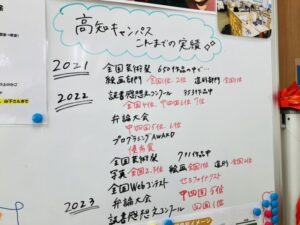 高知キャンパス
これまでの実績
2021
全国芸術祭 650作品の中で…
絵画部門 全国1位、2位 造形部門 全国1位
2022
読書感想文コンクール 3583作品中
全国4位、中四国6位、7位
弁論大会
中四国5位、6位
プログラミングAWARD
優秀賞
全国芸術祭 711作品中
写真 全国2、3位 絵画 全国1位 造形 全国2位
全国Webコンテスト セミファイナリスト
2023
弁論大会 中四国5位
読書感想文コンクール 四国1位